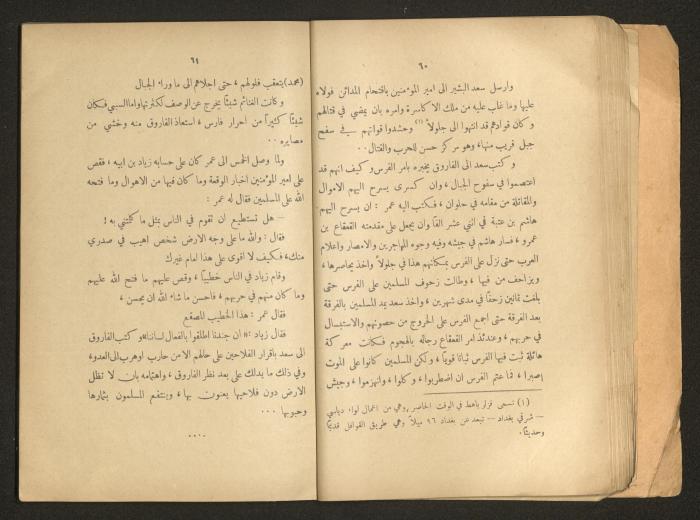 ٦٠
وارسل سعد البشير الى امير المؤمنين باقتحام المدائن فولاه
عليها وما غاب عليه من ملك الاكاسرة وامره بان يمضي في قتالهم
وكان قوادهم قد انتهوا الى جلولا (١) وحشدوا قواتهم في سفح
جبل قريب منها، وهو مركز حسن للحرب والقتال..
وكتب سعد الى الفاروق يخبره بامر الفرس وكيف انهم قد
اعتصموا في سفوح الجبال، وان كسرى يسرح اليهم الاموال
والمقاتلة من مقامه في حلوان، فكتب اليه عمر: ان يسرح اليهم
هاشم بن عتبة في اثني عشر الفاً وان يجعل على مقدمته القعقاع بن
عمرو، فسار هاشم في جيشه وفيه وجوه المهاجرين والانصار واعلام
العرب حتى نزل على الفرس بمكانهم هذا في جلولا واخذ يحاصرها،
ويزاحف من فيها، وطالت زحوف المسلمين على الفرس حتى
بلغت ثمانين زحفاً في مدى شهرين، واخذ سعد يمد المسلمين بالفرقة
بعد الفرقة حتى اجمع الفرس على الخروج من حصونهم والاستبسال
في حربهم، وعندئذ امر القعقاع رجاله بالهجوم فكانت معركة
هائلة ثبت فيها الفرس ثباتا قوياً، ولكن المسلمين كانوا على الموت
اصبرا، فما عتم الفرس ان اضطربوا، وكلوا، وانهزموا، وجيش
(١) تسمى قزلر باط في الوقت الحاضر وهي من اعمال لواء ديالى
— شرقي بغداد — تبعد عن بغداد ٩٦ ميلاً وهي طريق القوافل قديماً
وحديثاً.
٦١
(محمد) يتعقب فلولهم، حتى اجلاهم الى ما وراء الجبال
وكانت الغنائم شيئاً يخرج عن الوصف لكثرتها واما السبي فكان
شيئاً كثيراً من احرار فارس، استعاذ الفاروق منه وخشي من
مصايره..
ولما وصل الخمس الى عمر كان على حسابه زياد بن ابيه، فقص
على امير المؤمنين اخبار الوقعة وما كان فيها من الاهوال وما فتحه
الله على المسلمين فقال له عمر:
— هل تستطيع ان تقوم في الناس بمثل ما كلمتني به!
فقال: والله ما على وجه الارض شخص اهيب في صدري
منك، فكيف لا اقوى على هذا امام غيرك
وقام زياد في الناس خطيباً، وقص عليهم ما فتح الله عليهم
وما كان منهم في حربهم، فاحسن ما شاء الله ان يحسن،
فقال عمر: هذا الخطيب المصقع
فقال زياد: «ان جندنا اطلقوا بالفعال لساننا» وكتب الفاروق
الى سعد باقرار الفلاحين على حالهم الا من حارب او هرب الى العدو،
وفي ذلك ما يدلك على بعد نظر الفاروق، واهتمامه بان لا تظل
الارض دون فلاحيها يعنون بها، وينتفع المسلمون بثمارها
وحبوبها ...
....